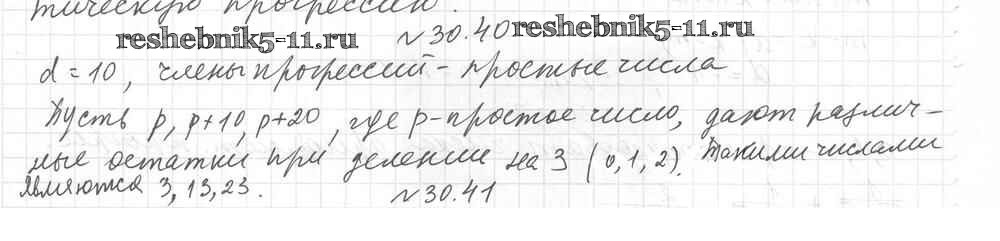 тическую прогрессии.
reshebnik5-11.ru №30.40 reshebnik5-11.ru
d=10, члены прогрессий - простые числа
Пусть p, p+10, p+20, где p-простое число, дают различ-
ные остатки при делении на 3 (0,1,2). Такими числами
являются 3, 13, 23. №30.41